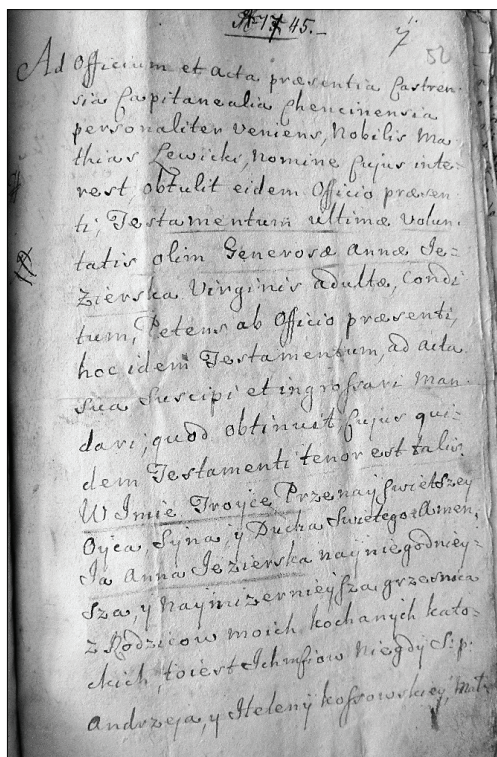 1745.
52
Ad Officium et acta præsentia Castren-
sia Capitanealia Chencinensia
personaliter veniens, Nobilis Ma-
thias Lewicki, Nomine cujus inte-
rest, obtulit eidem Officio præsen-
ti, Testamentum ultimæ volun-
tatis olim Generosæ Annæ Je-
zierska Virginis adultæ, Condi
tum, Petens ab Officio præsenti,
hoc idem Testamentum, ad acta
sua Suscipi et ingrossari Man-
dari; quod obtinuit cujus qui-
dem Testamenti tenor est talis.
W Imie Troyce Przenayswiętszey
Oyca Syna, y Ducha Swiętego Amen.
Ja Anna Jezierska nayniegodniey-
sza, y Naymizernieysza grzesnica
z Rodzicow moich kochanych kato-
ckich, toiest Ichmsiow Niegdy S: p:
Andrzeja, y Heleny Kossowskiey,